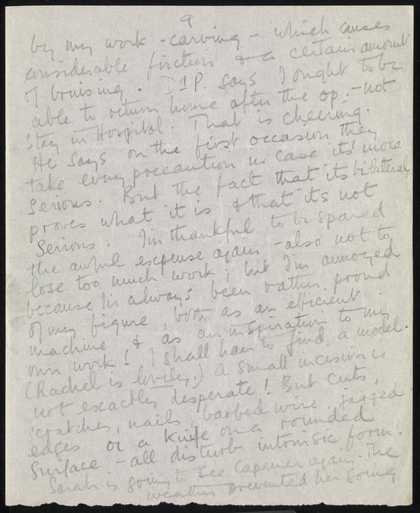 9
by my work - carving - which causes
considerable friction & a certain amount
of bruising. J.P. says I ought to be
able to return home after the op. - not
stay in Hospital. That is cheering.
He says on the first occasion they
take every precaution in case it's more
serious. But the fact that it's bilateral
proves what it is & that it's not
serious. I'm thankful to be spared
the awful expense again - also not to
lose too much work; but I'm annoyed
because I've always been rather proud
of my figure, both as an efficient
machine & as an inspiration to my
own work! I shall have to find a model.
(Rachel is lovely.) A small incision is
not exactly desperate! But cuts,
scratches, nails, barbed wire, jagged
edges or a knife on a rounded
surface - all disturb intrinsic form.
Sarah is going to see again. The
weather prevented her going